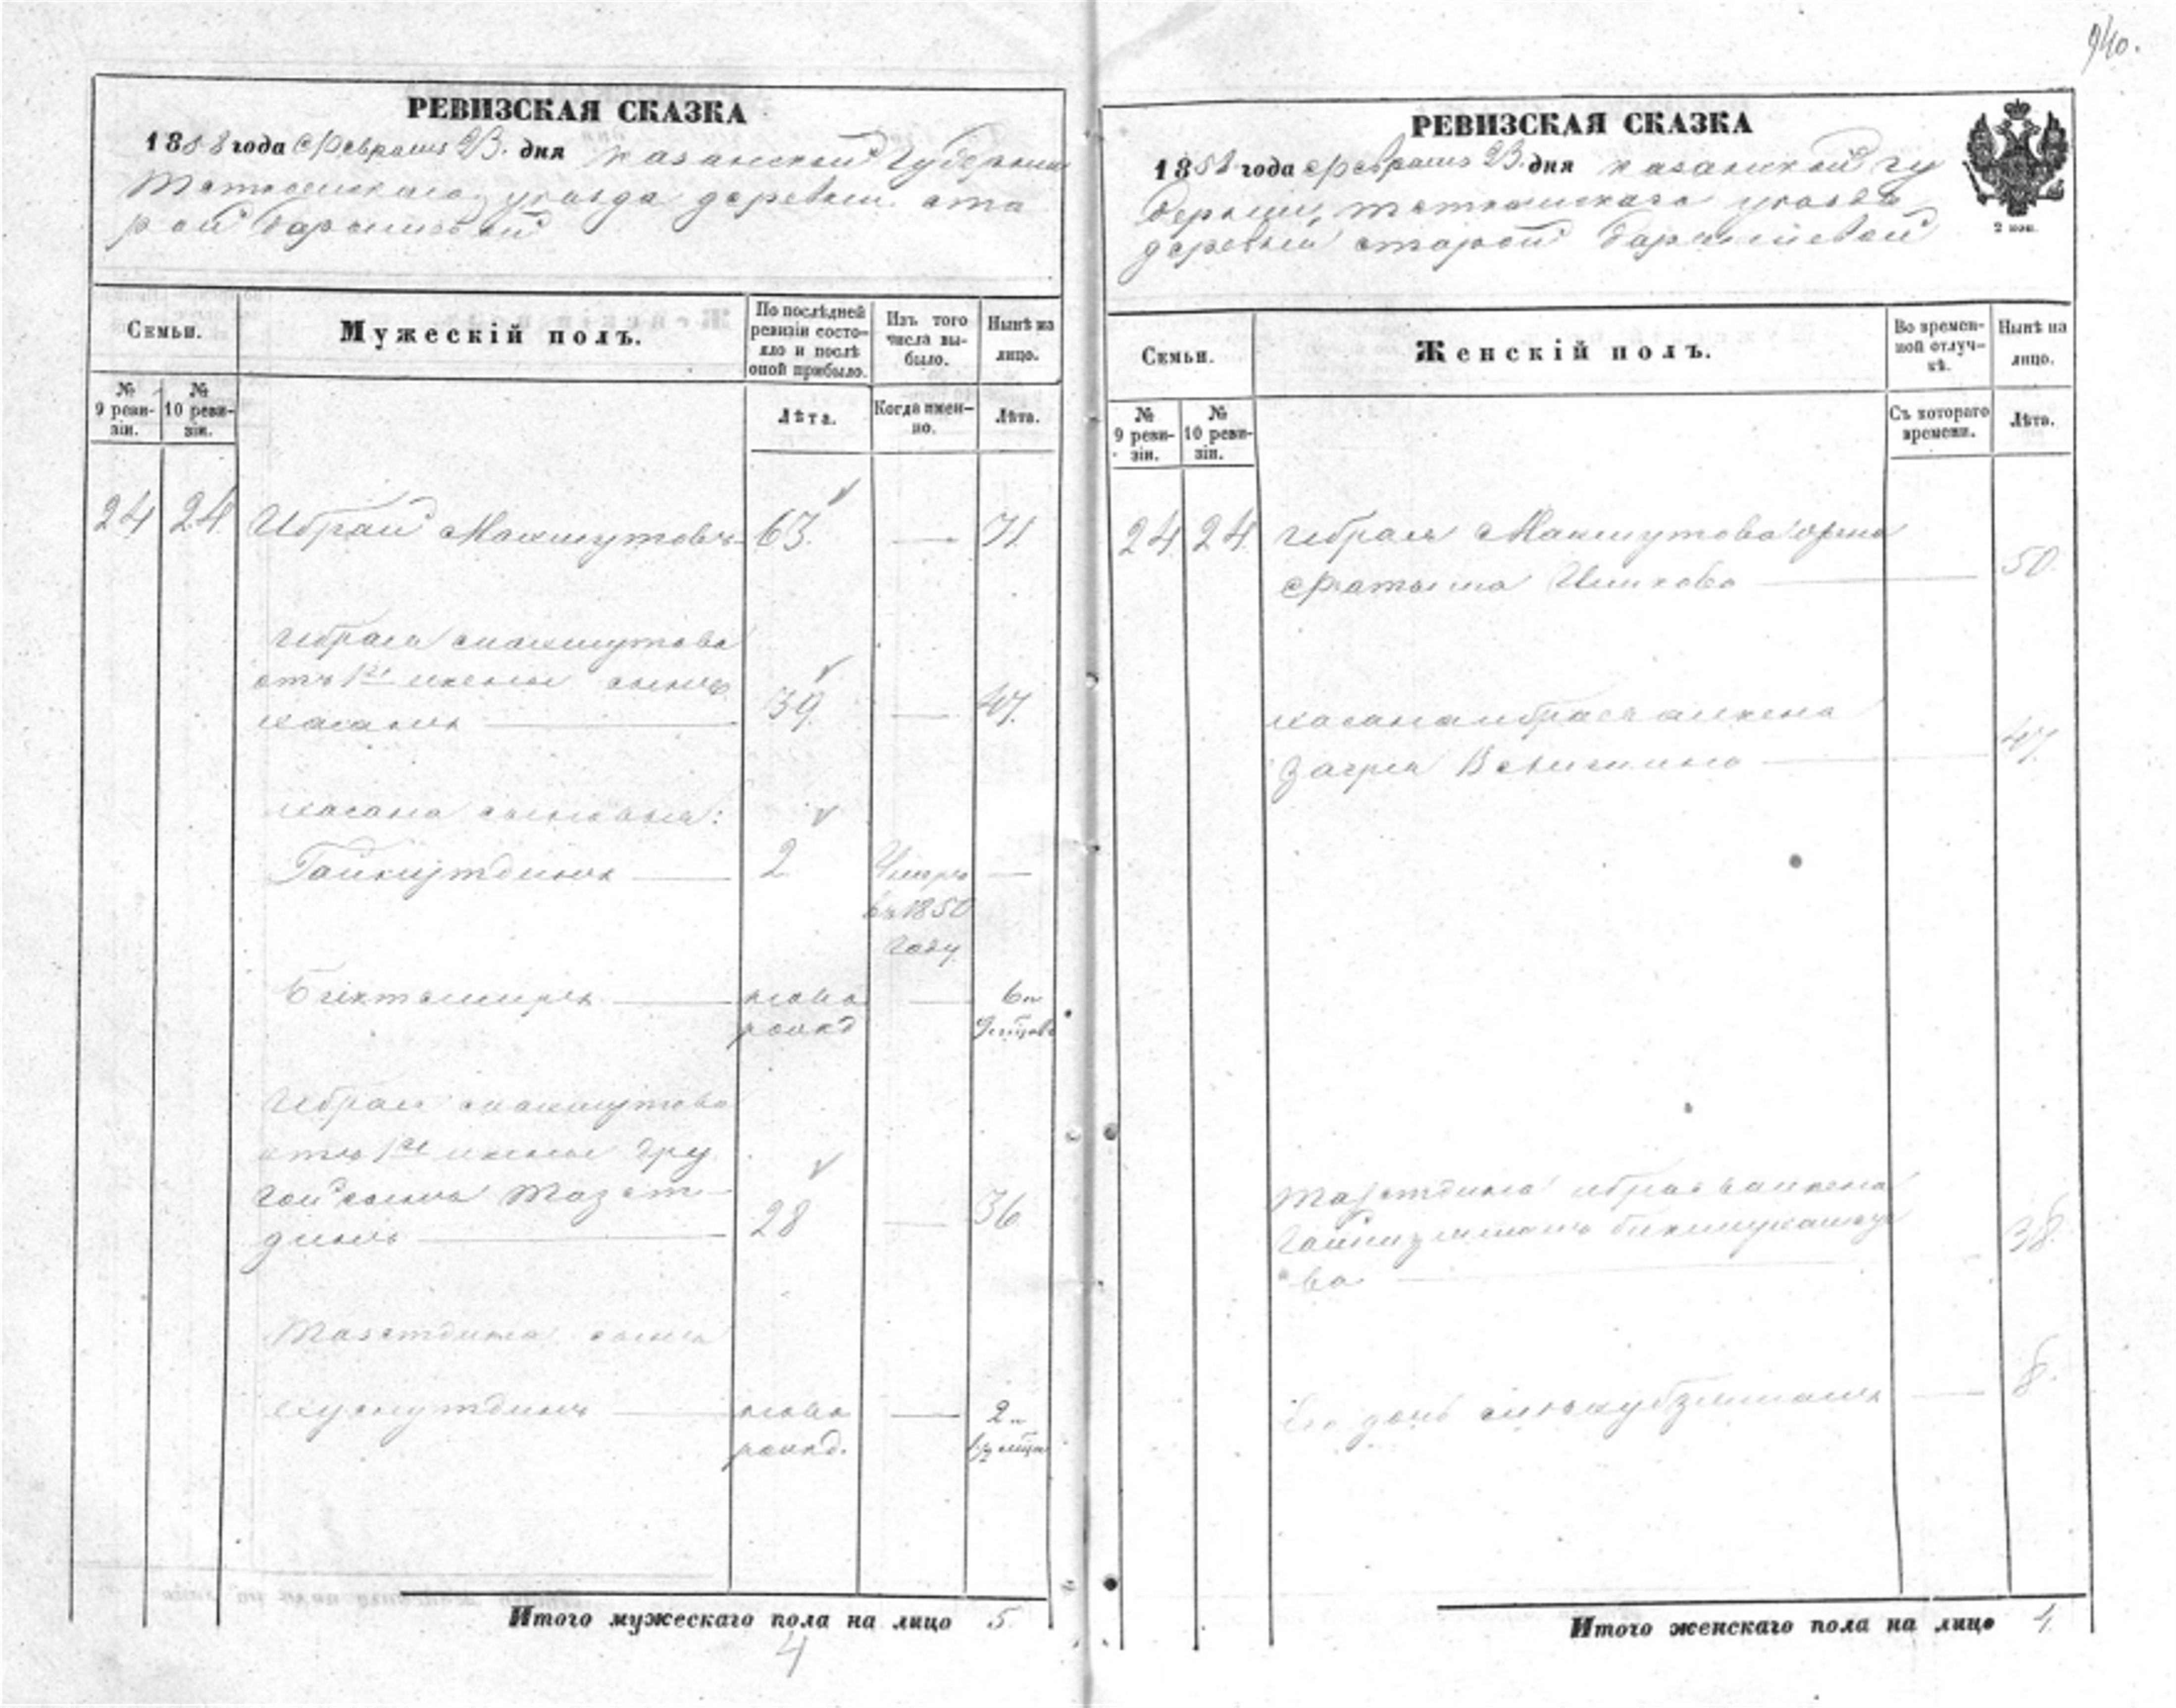 940.
РЕВИЗСКАЯ СКАЗКА
1858 года Февраля 23. дня Казанской Губернии
Тетюшскаго уезда деревни Ста
рой
Семьи.
Мужескій полъ.
По послѣдней ревизіи состо-
яло и послѣ оной прибыло.
Изъ того числа вы-
было.
Нынѣ на лицо.
№ 9 реви-
зіи.
№ 10 реви-
зіи.
Лѣта.
Когда имен-
но.
Лѣта.
24 24 Ибрай Макшутовъ 63. — 71
Ибрая Макшутова
отъ 1й жены сынъ
Хасанъ 39. — 47.
Хасана сыновья:
2 Умеръ —
въ 1850
году
Биктемиръ ново — 6 и
рожд
Ибрая Макшутова
отъ 1й жены дру
гой сынъ Тазет
динъ 28 — 36
Тазетдина сынъ
ново — 2 и
рожд. 1/2 мѣся
Итого мужескаго пола на лицо 5.
4
РЕВИЗСКАЯ СКАЗКА
1858 года Февраля 23. дня Казанской гу
берніи, Тетюшскаго уезда
деревни Старой
2 коп.
Семьи.
Женскій полъ.
Во времен-
ной отлуч-
кѣ.
Нынѣ на лицо.
№ 9 реви-
зіи.
№ 10 реви-
зіи.
Съ котораго времени.
Лѣта.
24 24 Ибрая Макшутова жена
Фатыма 50.
Хасана Ибраева жена
Загря 47.
Тазетдина Ибраева жена
ва 38.
Его дочь — 8.
Итого женскаго пола на лицо 4